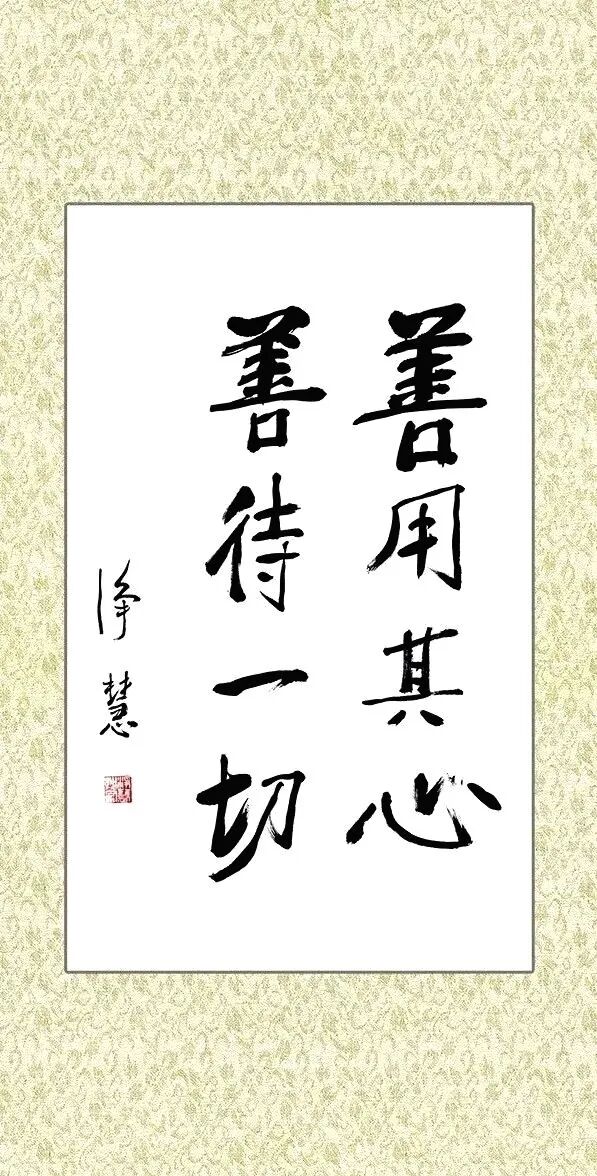 善用其心
善待一切
净慧